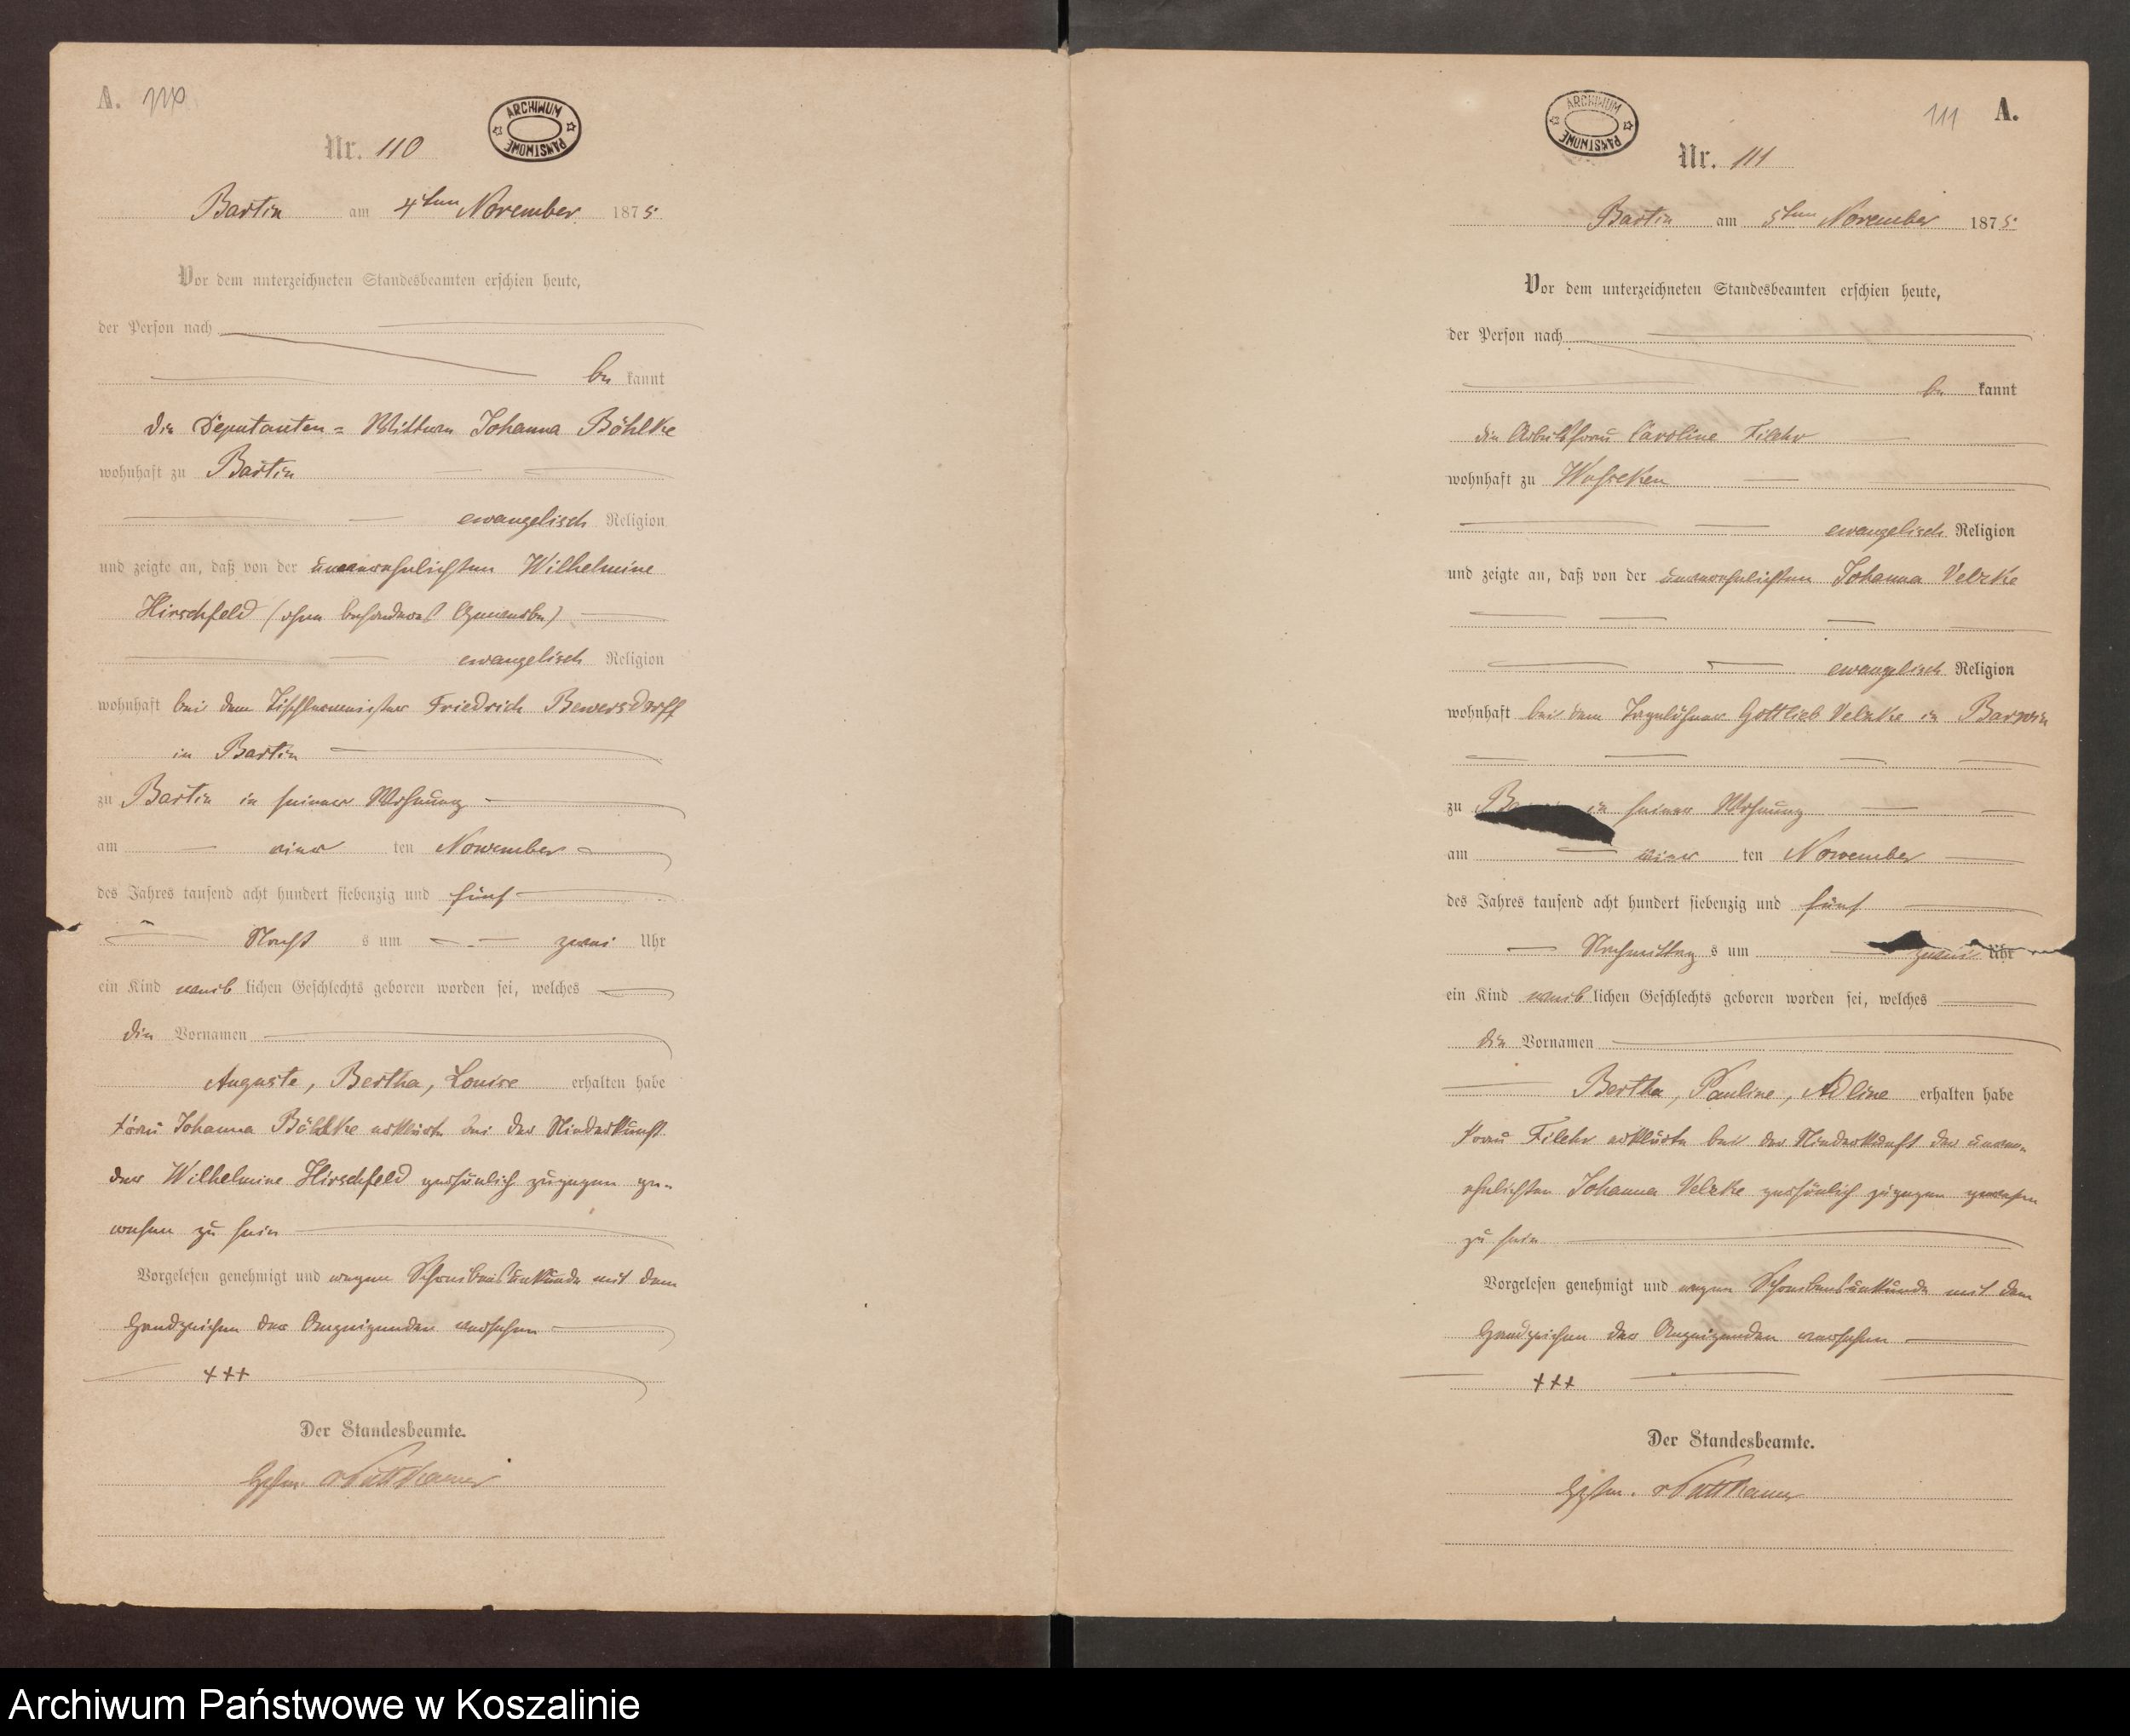 A. 110
ARCHIWUM PAŃSTWOWE
Nr. 110
Bartin am 4ten November 1875
Vor dem unterzeichneten Standesbeamten erschien heute,
der Person nach
be kannt
die Deputanten=Wittwe Johanna Böhlke
wohnhaft zu Bartin
evangelisch Religion
und zeigte an, daß von der unverehelichten Wilhelmine
Hirschfeld (ohne besonderes Gewerbe)
evangelisch Religion
wohnhaft bei dem Tischlermeister Friedrich Bewersdorff
in Bartin
zu Bartin in seiner Wohnung
am vier ten November
des Jahres tausend acht hundert siebenzig und fünf
Nacht s um zwei Uhr
ein Kind weib lichen Geschlechts geboren worden sei, welches
die Vornamen
Auguste, Bertha, Louise erhalten habe
Frau Johanna Böhlke erklärte bei der Niederkunft
der Wilhelmine Hirschfeld persönlich zugegen ge-
wesen zu sein
Vorgelesen genehmigt und wegen Schreibensunkunde mit dem
Handzeichen der Anzeigenden versehen
+++
Der Standesbeamte.
v Puttkamer
111 A.
ARCHIWUM PAŃSTWOWE
Nr. 111
Bartin am 5ten November 1875
Vor dem unterzeichneten Standesbeamten erschien heute,
der Person nach
be kannt
die Arbeitsfrau Caroline Filehr
wohnhaft zu Wusseken
evangelisch Religion
und zeigte an, daß von der unverehelichten Johanna Velzke
evangelisch Religion
wohnhaft bei dem Tagelöhner Gottlieb Velzke in Barvin
zu in seiner Wohnung
am vier ten November
des Jahres tausend acht hundert siebenzig und fünf
Nachmittag s um zwei Uhr
ein Kind weib lichen Geschlechts geboren worden sei, welches
die Vornamen
Bertha, Pauline, Adline erhalten habe
Frau Filehr erklärte bei der Niederkunft der unver-
ehelichten Johanna Velzke persönlich zugegen gewesen
zu sein
Vorgelesen genehmigt und wegen Schreibensunkunde mit dem
Handzeichen der Anzeigenden versehen
+++
Der Standesbeamte.
v Puttkamer
Archiwum Państwowe w Koszalinie